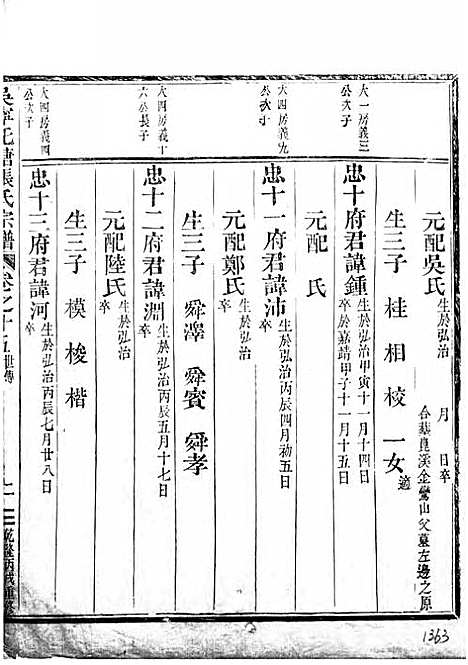 元配吳氏 生於弘治 月 日卒 合葬崑溪金鶯山父墓左邊之原
生三子 桂 相 校 一女 適
大一房義三公次子
忠十府君諱鍾 生於弘治甲寅十一月十四日 卒於嘉靖甲子十一月十五日
元配 氏
大四房義九公次子
忠十一府君諱沛 生於弘治丙辰四月初五日 卒
元配鄭氏 生於弘治 卒
生三子 舜澤 舜賓 舜孝
大四房義十六公長子
忠十二府君諱淵 生於弘治丙辰五月十七日 卒
元配陸氏 生於弘治 卒
生三子 模 梭 楷
大四房義四公次子
忠十三府君諱河 生於弘治丙辰七月廿八日 卒
吳寧托塘張氏宗譜 卷之十五 世傳 乾隆丙戌重修
1363